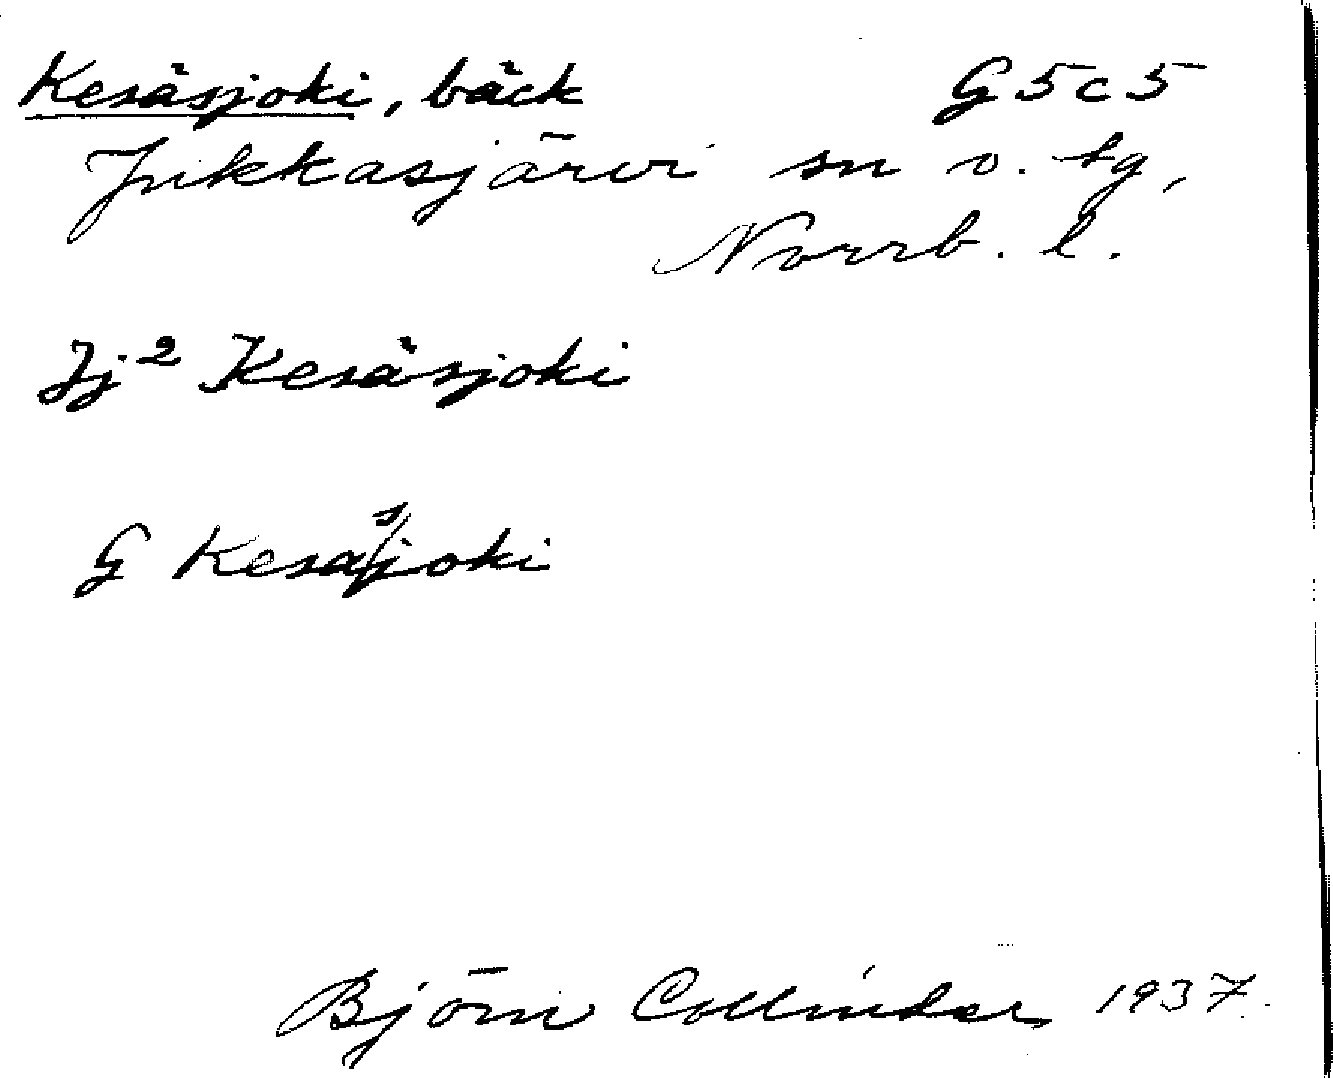 Kesäsjoki, bäck G5c5
Jukkasjärvi sn o. tg,
Norrb. l.
Jj² Kesäsjoki
G Kesäsjoki
Björn Collinder 1937.